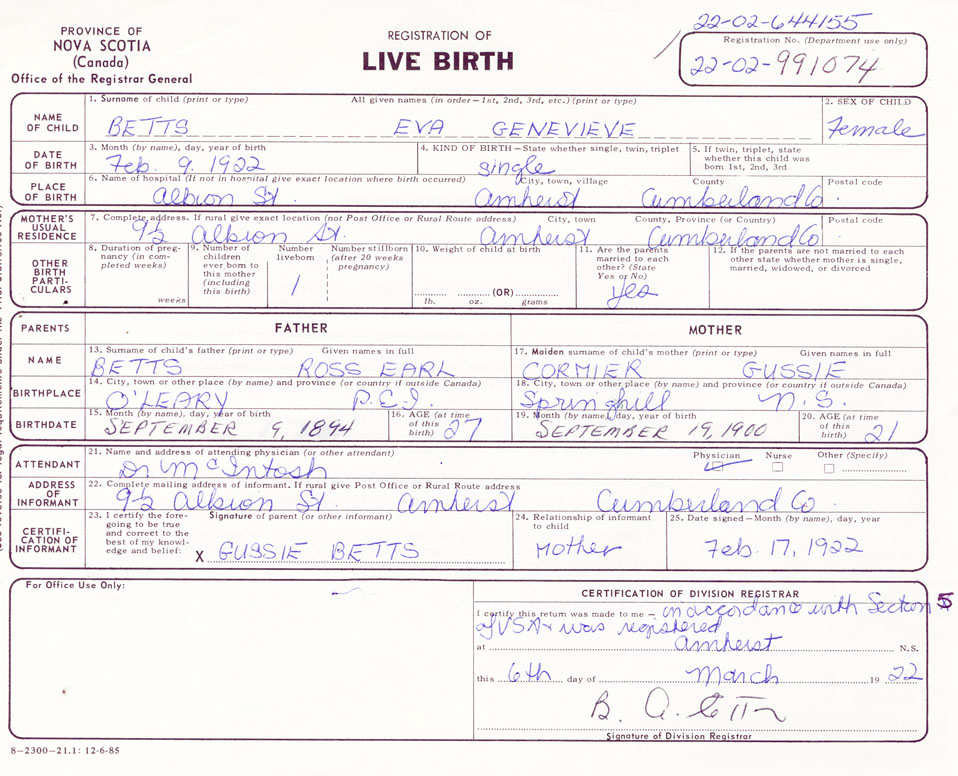 PROVINCE OF
NOVA SCOTIA
(Canada)
Office of the Registrar General
REGISTRATION OF
LIVE BIRTH
22-02-644155
Registration No. (Department use only)
22-02-991074
NAME OF CHILD
1. Surname of child (print or type) All given names (in order—1st, 2nd, 3rd, etc.) (print or type)
BETTS EVA GENEVIEVE
2. SEX OF CHILD
Female
DATE OF BIRTH
3. Month (by name), day, year of birth
Feb. 9, 1922
4. KIND OF BIRTH—State whether single, twin, triplet
single
5. If twin, triplet, state
whether this child was
born 1st, 2nd, 3rd
PLACE OF BIRTH
6. Name of hospital (If not in hospital give exact location where birth occurred) City, town, village County Postal code
Albion St Amherst Cumberland Co
MOTHER'S USUAL RESIDENCE
7. Complete address. If rural give exact location (not Post Office or Rural Route address) City, town County, Province (or Country) Postal code
9½ Albion St. Amherst Cumberland Co
OTHER BIRTH PARTI-CULARS
8. Duration of preg-
nancy (in com-
pleted weeks)
weeks
9. Number of
children
ever born to
this mother
(including
this birth)
Number
liveborn
1
Number stillborn
(after 20 weeks
pregnancy)
10. Weight of child at birth
(OR)
lb. oz. grams
11. Are the parents
married to each
other? (State
Yes or No)
yes
12. If the parents are not married to each
other state whether mother is single,
married, widowed, or divorced
PARENTS FATHER MOTHER
NAME
13. Surname of child's father (print or type) Given names in full
BETTS ROSS EARL
17. Maiden surname of child's mother (print or type) Given names in full
CORMIER GUSSIE
BIRTHPLACE
14. City, town or other place (by name) and province (or country if outside Canada)
O'LEARY P.E.I.
18. City, town or other place (by name) and province (or country if outside Canada)
Springhill N.S.
BIRTHDATE
15. Month (by name), day, year of birth
SEPTEMBER 9, 1894
16. AGE (at time
of this
birth) 27
19. Month (by name), day, year of birth
SEPTEMBER 19, 1900
20. AGE (at time
of this
birth) 21
ATTENDANT
21. Name and address of attending physician (or other attendant)
Dr. McIntosh
Physician Nurse Other (Specify)
ADDRESS OF INFORMANT
22. Complete mailing address of informant. If rural give Post Office or Rural Route address
9½ Albion St. Amherst Cumberland Co
CERTIFI-CATION OF INFORMANT
23. I certify the fore-
going to be true
and correct to the
best of my knowl-
edge and belief:
Signature of parent (or other informant)
X GUSSIE BETTS
24. Relationship of informant
to child
Mother
25. Date signed—Month (by name), day, year
Feb. 17, 1922
For Office Use Only:
CERTIFICATION OF DIVISION REGISTRAR
I certify this return was made to me — in accordance with Section 5
of VSA & was registered
at Amherst N.S.
this 6th day of March 19 22
B. A.
Signature of Division Registrar
8—2300—21.1: 12-6-85